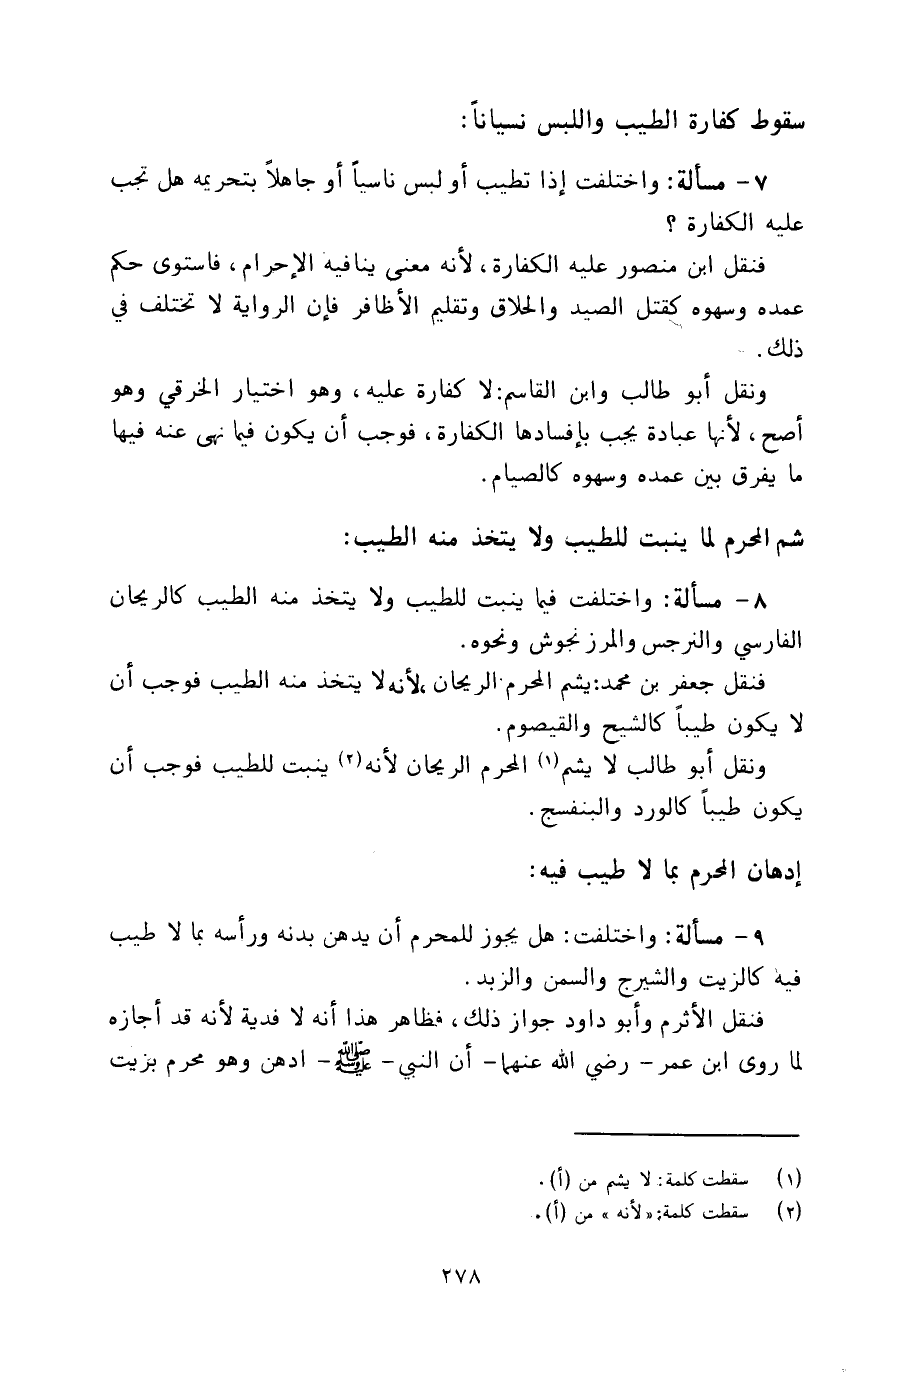 سقوط كفارة الطيب واللبس نسياناً:
٧ - مسألة: واختلفت إذا تطيب أو لبس ناسياً أو جاهلاً بتحريمه هل تجب
عليه الكفارة ؟
فنقل ابن منصور عليه الكفارة، لأنه معنى ينافيه الإحرام، فاستوى حكم
عمده وسهوه كقتل الصيد والحلاق وتقليم الأظافر فإن الرواية لا تختلف في
ذلك.
ونقل أبو طالب وابن القاسم: لا كفارة عليه، وهو اختيار الخرقي وهو
أصح، لأنها عبادة يجب بإفسادها الكفارة، فوجب أن يكون فيما نهى عنه فيها
ما يفرق بين عمده وسهوه كالصيام.
شم المحرم لما ينبت للطيب ولا يتخذ منه الطيب:
٨ - مسألة: واختلفت فيما ينبت للطيب ولا يتخذ منه الطيب كالريحان
الفارسي والنرجس والمرزنجوش ونحوه.
فنقل جعفر بن محمد: يشم المحرم الريحان، لأنه لا يتخذ منه الطيب فوجب أن
لا يكون طيباً كالشيح والقيصوم.
ونقل أبو طالب لا يشم(١) المحرم الريحان لأنه(٢) ينبت للطيب فوجب أن
يكون طيباً كالورد والبنفسج.
إدهان المحرم بما لا طيب فيه:
٩ - مسألة: واختلفت: هل يجوز للمحرم أن يدهن بدنه ورأسه بما لا طيب
فيه كالزيت والشيرج والسمن والزبد.
فنقل الأثرم وأبو داود جواز ذلك، فظاهر هذا أنه لا فدية لأنه قد أجازه
لما روى ابن عمر - رضي الله عنهما - أن النبي - ﷺ - ادهن وهو محرم بزيت
(١) سقطت كلمة: لا يشم من (أ).
(٢) سقطت كلمة: «لأنه» من (أ).
٢٧٨